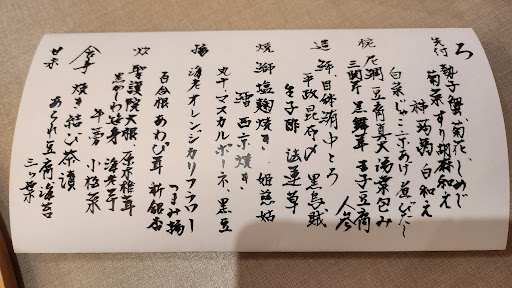 ろ
先付 勢子蟹、菊花、しめじ
菊菜すり胡麻和え
柿 蒟蒻 白和え
白菜じゃこ
椀 尼鯛 豆腐真丈 湯葉包み
黒舞茸 玉子豆腐 人参
造 鮃 目鉢鮪中とろ
平政昆布〆 黒烏賊
金子酢 法蓮草
焼 鰤塩麹焼き 姫慈姑
西京焼き
丸十マスカルポーネ、黒豆
揚 海老オレンジカリフラワー
百合根 あわび茸 新銀杏
つまみ揚
炊 聖護院大根 原木椎茸
海老芋
牛蒡 小松菜
食事 焼き結び茶漬
あられ 豆腐 海苔
三つ葉
甘味